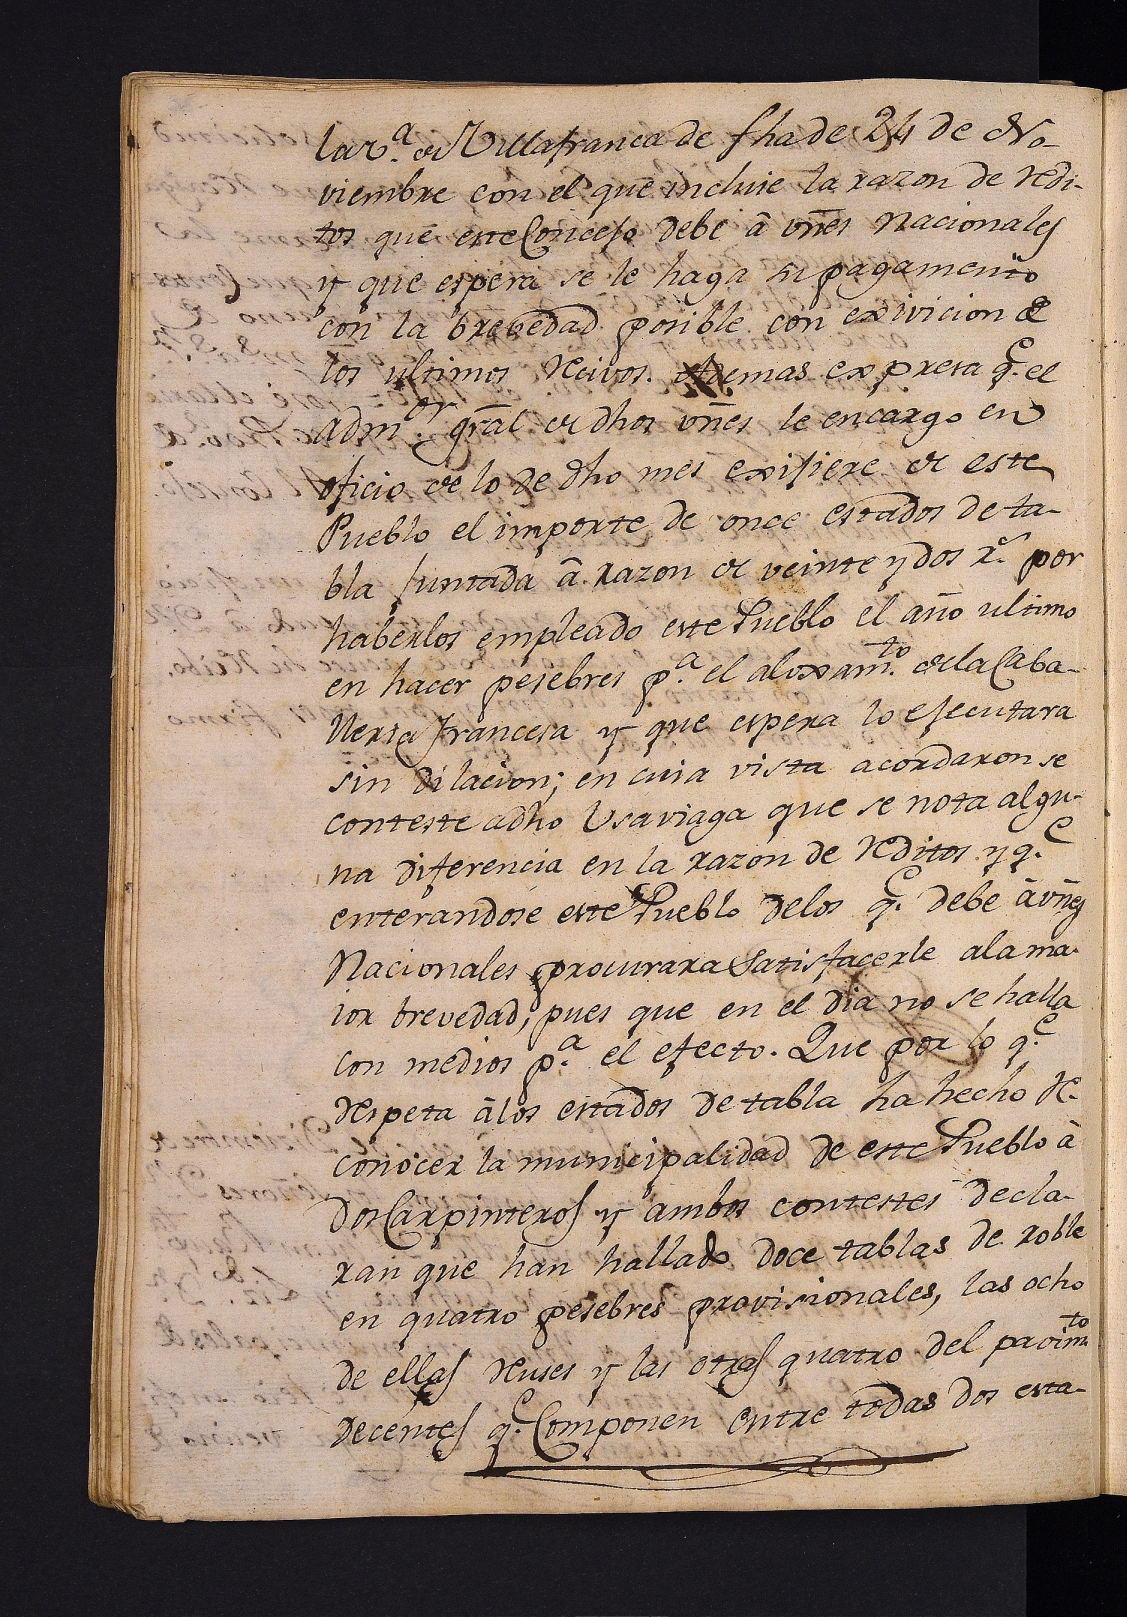 la v.ª de Villafranca de fha de 24 de No-
viembre con el que incluie la razon de redi-
tos que este Concejo debe â vñes Nacionales
y que espera se le haga su pagamento
con la brebedad posible con exivicion de
los ultimos recivos. Ademas expresa q.e el
Adm.or gral de dhos vñes le encargo en
oficio de lo de dho mes exijiere de este
Pueblo el importe de once estados de ta-
bla juntada â razon de veinte y dos r.s por
haberlos empleado este Pueblo el año ultimo
en hacer pesebres p.ª el aloxam.to de la Caba-
lleria francesa y que espera lo ejecutara
sin dilacion; en cuia vista acordaron se
conteste a dho Usaviaga que se nota algu-
na diferencia en la razon de reditos y q.e
enterandose este Pueblo delos q.e debe â vñes
Nacionales procurara Satisfacerle ala ma-
ior brevedad, pues que en el dia no se halla
con medios p.ª el efecto. Que por lo q.e
respeta âlos estados de tabla ha hecho re-
conocer la municipalidad de este Pueblo â
dos Carpinteros y ambos contestes decla-
ran que han hallado doce tablas de roble
en quatro pesebres provisionales, las ocho
de ellas reuses y las otras quatro del
decentes q.e Componen entre todas dos esta-